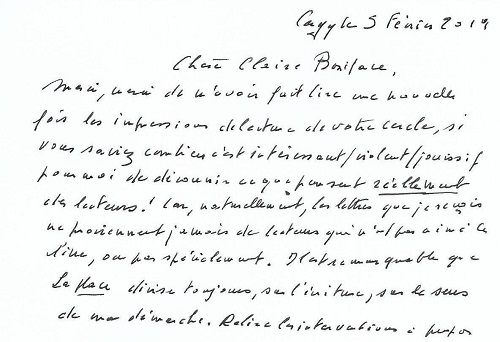 Cergy le 5 Février 2019
Chère Claire Boniface,
Merci, merci de m'avoir fait lire une nouvelle
fois les impressions de lecture de votre cercle, si
vous saviez combien c'est intéressant/violent/jouissif
pour moi de découvrir ce que pensent réellement
des lecteurs! Car, naturellement, les lettres que je reçois
ne proviennent jamais de lecteurs qui n'ont pas aimé le
livre, ou pas spécialement. Il est remarquable que
La place divise toujours, sur l'écriture, sur le sens
de ma démarche. Relire les interventions à propos